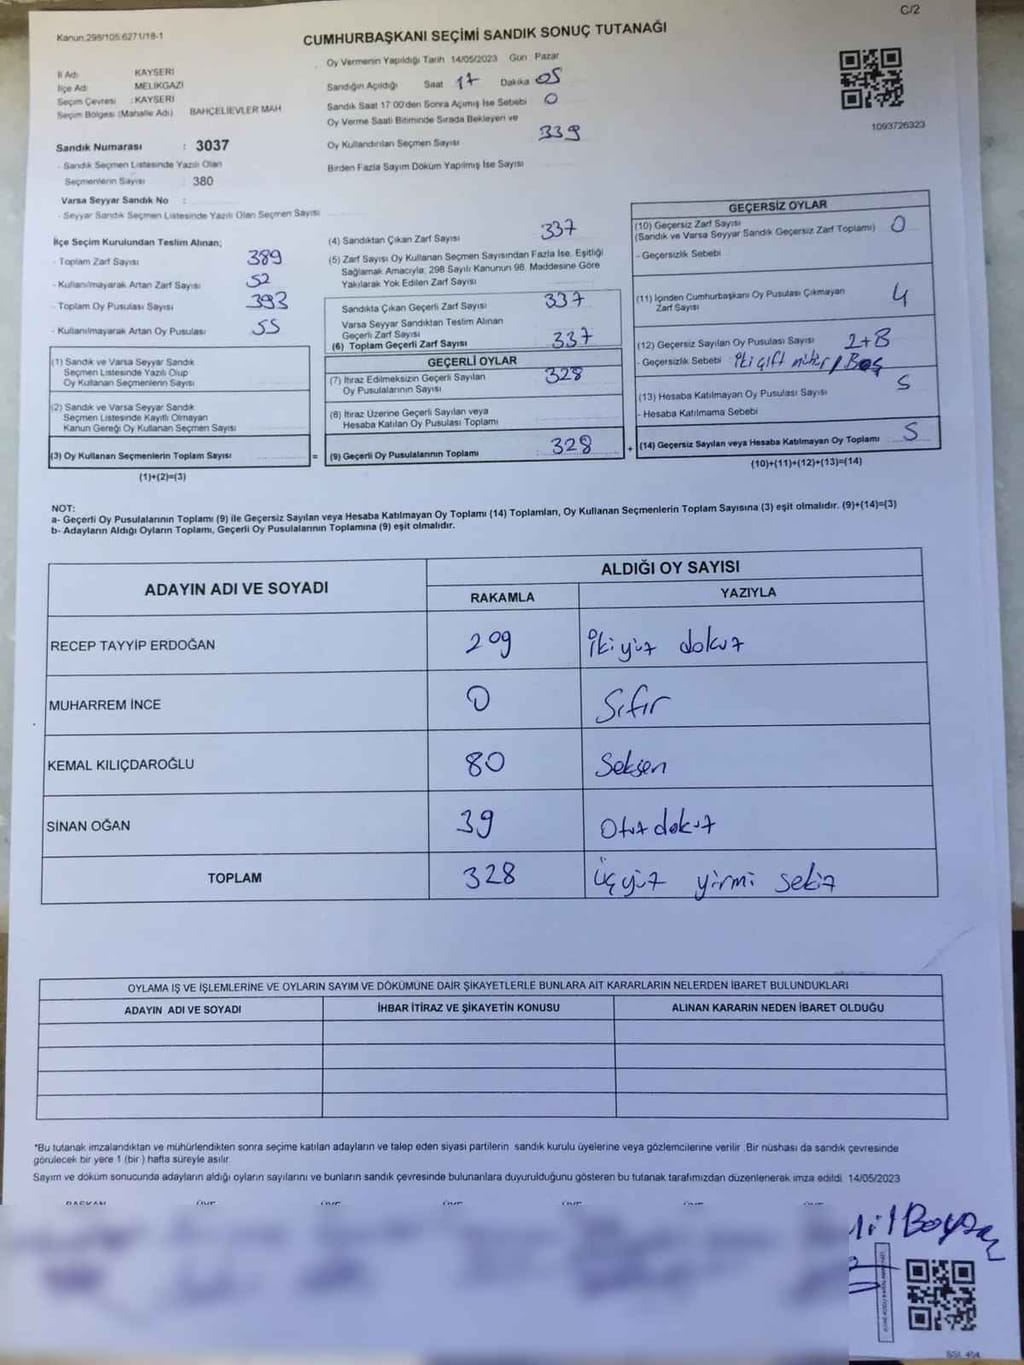 C/2
Kanun:298/105.6271/18-1
CUMHURBAŞKANI SEÇİMİ SANDIK SONUÇ TUTANAĞI
İl Adı KAYSERİ
İlçe Adı MELİKGAZİ
Seçim Çevresi : KAYSERİ
Seçim Bölgesi (Mahalle Adı) BAHÇELİEVLER MAH
Sandık Numarası : 3037
- Sandık Seçmen Listesinde Yazılı Olan
Seçmenlerin Sayısı 380
Varsa Seyyar Sandık No :
- Seyyar Sandık Seçmen Listesinde Yazılı Olan Seçmen Sayısı
Oy Vermenin Yapıldığı Tarih 14/05/2023 Gün Pazar
Sandığın Açıldığı Saat 17 Dakika 05
Sandık Saat 17:00'den Sonra Açımış İse Sebebi 0
Oy Verme Saati Bitiminde Sırada Bekleyen ve
Oy Kullandırılan Seçmen Sayısı 339
Birden Fazla Sayım Döküm Yapılmış İse Sayısı
1093726323
İlçe Seçim Kurulundan Teslim Alınan;
- Toplam Zarf Sayısı 389
- Kullanılmayarak Artan Zarf Sayısı 52
- Toplam Oy Pusulası Sayısı 393
- Kullanılmayarak Artan Oy Pusulası 55
(1) Sandık ve Varsa Seyyar Sandık
Seçmen Listesinde Yazılı Olup
Oy Kullanan Seçmenlerin Sayısı
(2) Sandık ve Varsa Seyyar Sandık
Seçmen Listesinde Kayıtlı Olmayan
Kanun Gereği Oy Kullanan Seçmen Sayısı
(3) Oy Kullanan Seçmenlerin Toplam Sayısı
(1)+(2)=(3)
=
(4) Sandıktan Çıkan Zarf Sayısı 337
(5) Zarf Sayısı Oy Kullanan Seçmen Sayısından Fazla İse, Eşitliği
Sağlamak Amacıyla, 298 Sayılı Kanunun 98. Maddesine Göre
Yakılarak Yok Edilen Zarf Sayısı
Sandıkta Çıkan Geçerli Zarf Sayısı 337
Varsa Seyyar Sandıktan Teslim Alınan
Geçerli Zarf Sayısı
(6) Toplam Geçerli Zarf Sayısı 337
GEÇERLİ OYLAR
(7) İtiraz Edilmeksizin Geçerli Sayılan 328
Oy Pusulalarının Sayısı
(8) İtiraz Üzerine Geçerli Sayılan veya
Hesaba Katılan Oy Pusulası Toplamı
(9) Geçerli Oy Pusulalarının Toplamı 328
+
GEÇERSİZ OYLAR
(10) Geçersiz Zarf Sayısı 0
(Sandık ve Varsa Seyyar Sandık Geçersiz Zarf Toplamı)
- Geçersizlik Sebebi
(11) İçinden Cumhurbaşkanı Oy Pusulası Çıkmayan 4
Zarf Sayısı
(12) Geçersiz Sayılan Oy Pusulası Sayısı 2+B
- Geçersizlik Sebebi İki çift mühür / Boş
(13) Hesaba Katılmayan Oy Pusulası Sayısı 5
- Hesaba Katılmama Sebebi
(14) Geçersiz Sayılan veya Hesaba Katılmayan Oy Toplamı 5
(10)+(11)+(12)+(13)=(14)
NOT:
a- Geçerli Oy Pusulalarının Toplamı (9) ile Geçersiz Sayılan veya Hesaba Katılmayan Oy Toplamı (14) Toplamları, Oy Kullanan Seçmenlerin Toplam Sayısına (3) eşit olmalıdır. (9)+(14)=(3)
b- Adayların Aldığı Oyların Toplamı, Geçerli Oy Pusulalarının Toplamına (9) eşit olmalıdır.
ADAYIN ADI VE SOYADI ALDIĞI OY SAYISI
RAKAMLA YAZIYLA
RECEP TAYYİP ERDOĞAN 209 İkiyüz dokuz
MUHARREM İNCE 0 Sıfır
KEMAL KILIÇDAROĞLU 80 Seksen
SİNAN OĞAN 39 Otuz dokuz
TOPLAM 328 Üçyüz yirmi sekiz
OYLAMA İŞ VE İŞLEMLERİNE VE OYLARIN SAYIM VE DÖKÜMÜNE DAİR ŞİKAYETLERLE BUNLARA AİT KARARLARIN NELERDEN İBARET BULUNDUKLARI
ADAYIN ADI VE SOYADI İHBAR İTİRAZ VE ŞİKAYETİN KONUSU ALINAN KARARIN NEDEN İBARET OLDUĞU
*Bu tutanak imzalandıktan ve mühürlendikten sonra seçime katılan adayların ve talep eden siyasi partilerin sandık kurulu üyelerine veya gözlemcilerine verilir. Bir nüshası da sandık çevresinde
görülecek bir yere 1 (bir) hafta süreyle asılır.
Sayım ve döküm sonucunda adayların aldığı oyların sayılarını ve bunların sandık çevresinde bulunanlara duyurulduğunu gösteren bu tutanak tarafımızdan düzenlenerek imza edildi. 14/05/2023